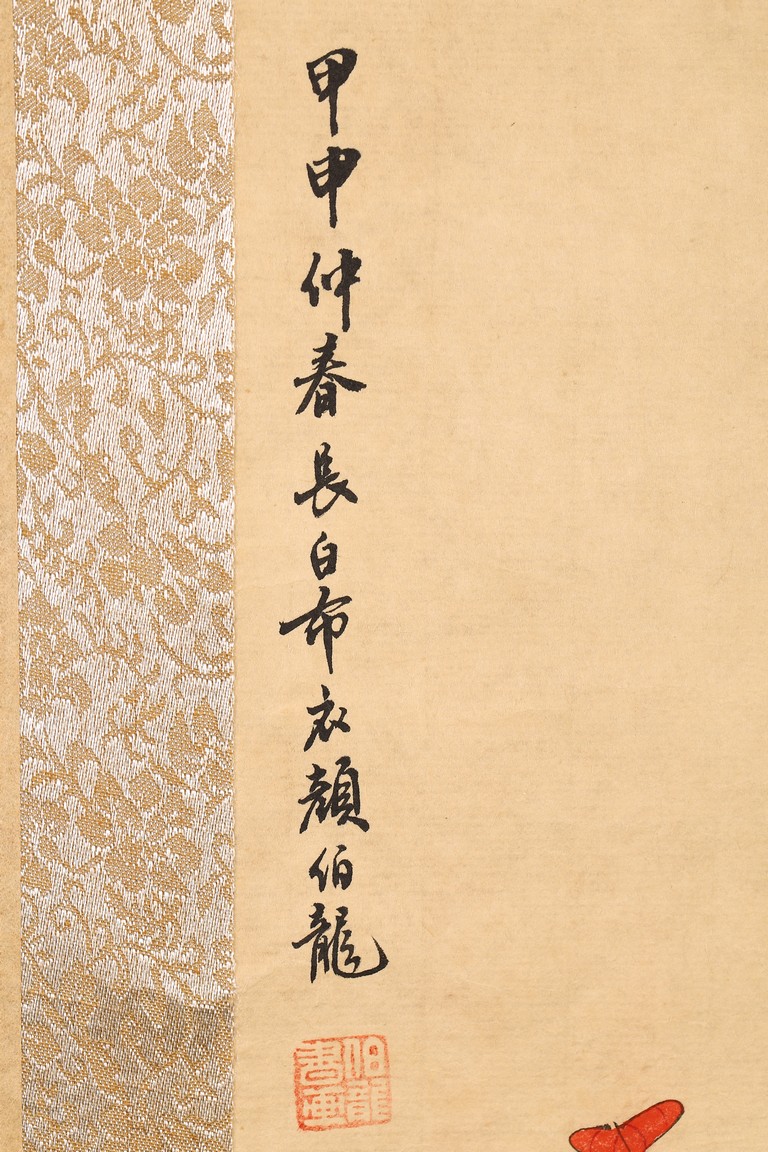 甲申仲春長白布衣顏伯龍
伯龍書畫